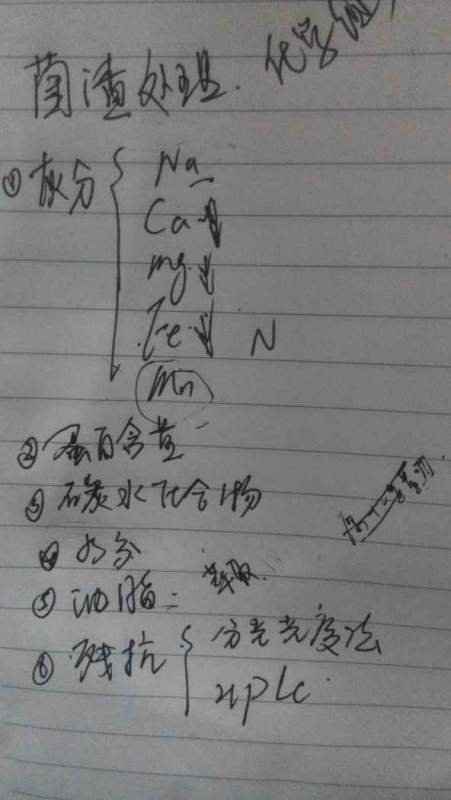 菌渣处理. 化学
① 灰分 { Na
Ca ↓
mg ↓
Fe ↓ N
Mn
② 蛋白含量
③ 碳水化合物
④ 水分
⑤ 油脂: 萃取.
⑥ 残抗 { 分光光度法
HPLC.